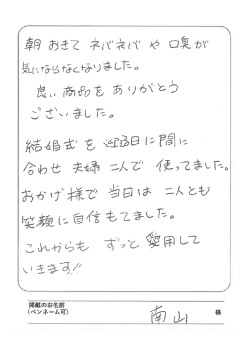 朝おきてネバネバや口臭が
気にならなくなりました。
良い商品をありがとう
ございました。
結婚式を迎える日に間に
合わせ夫婦二人で使ってました。
おかげ様で当日は二人とも
笑顔に自信もてました。
これからもずっと愛用して
いきます!!
掲載のお名前
(ペンネーム可)
南山 様